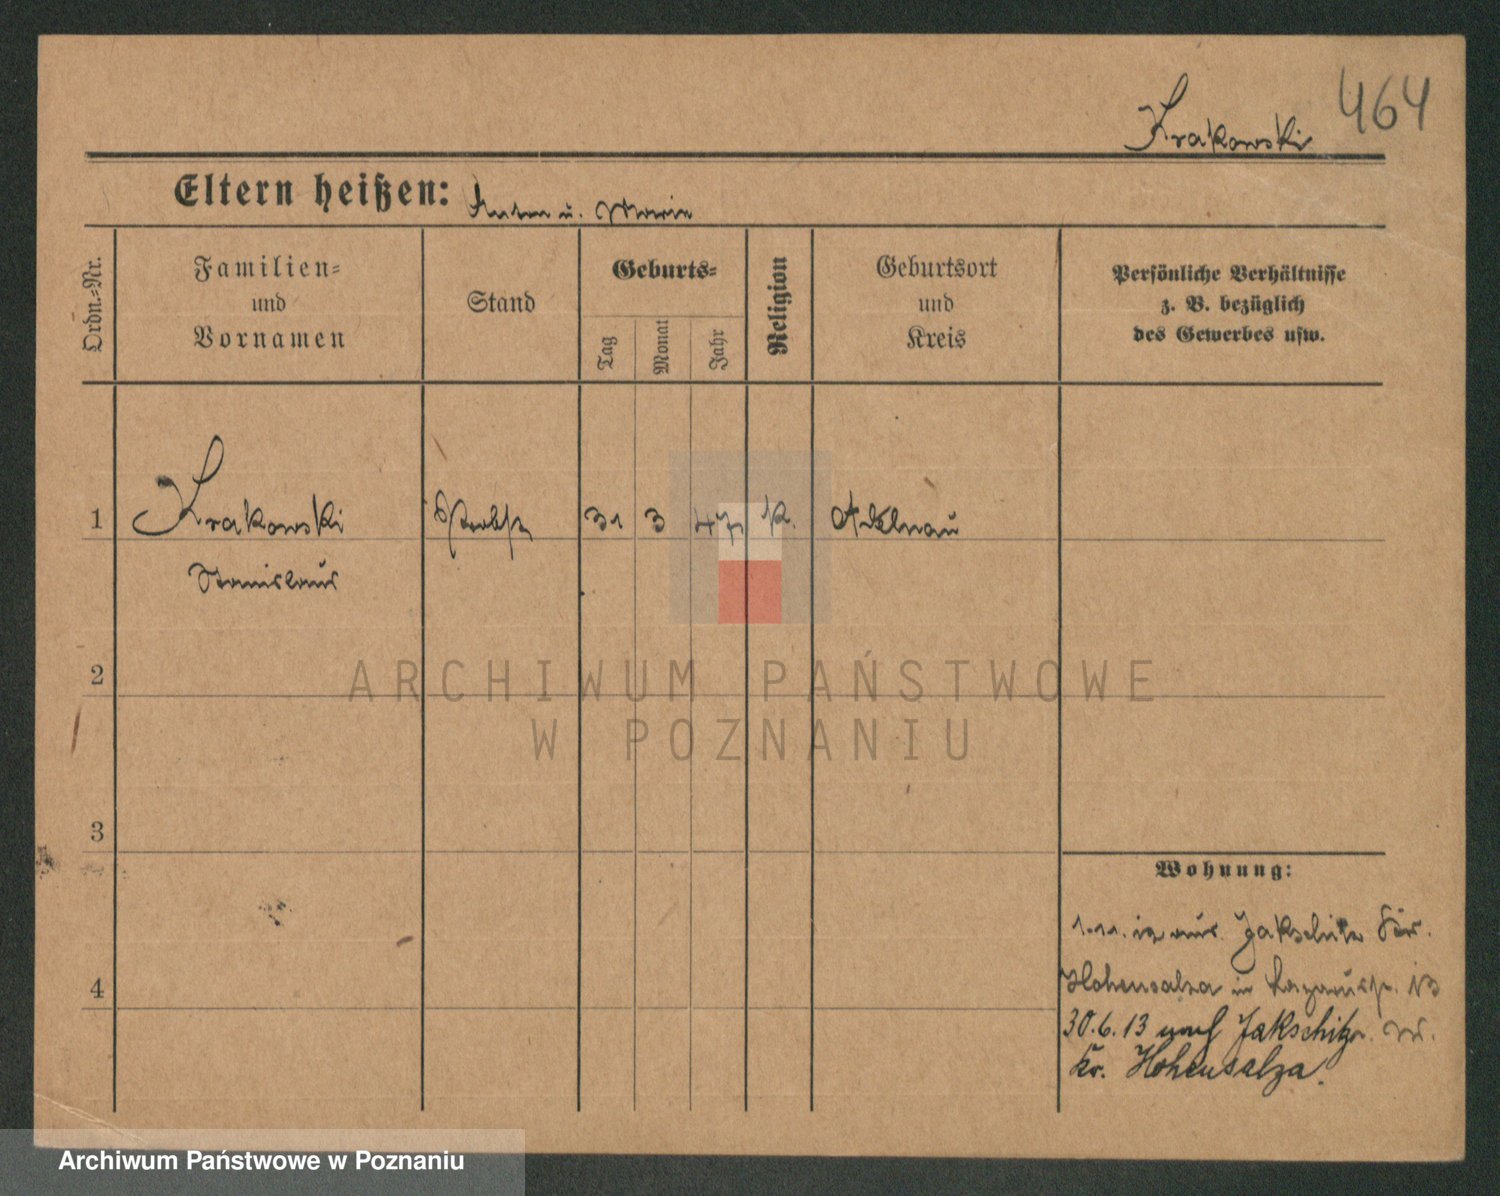 464
Krakowski
Eltern heißen: Anton u. Marie
Ordn.-Nr.
Familien-
und
Vornamen
Stand
Geburts-
Tag
Monat
Jahr
Religion
Geburtsort
und
Kreis
Persönliche Verhältnisse
z. B. bezüglich
des Gewerbes usw.
1 Krakowski Probst 31 3 47 K. Adelnau
Stanislaus
2
3
4
Wohnung:
1.11. 12 aus Jakschitz Kr.
Hohensalza in Lazarusstr. 13
30.6.13 nach Jakschitz
Kr. Hohensalza.
ARCHIWUM PAŃSTWOWE
W POZNANIU
Archiwum Państwowe w Poznaniu